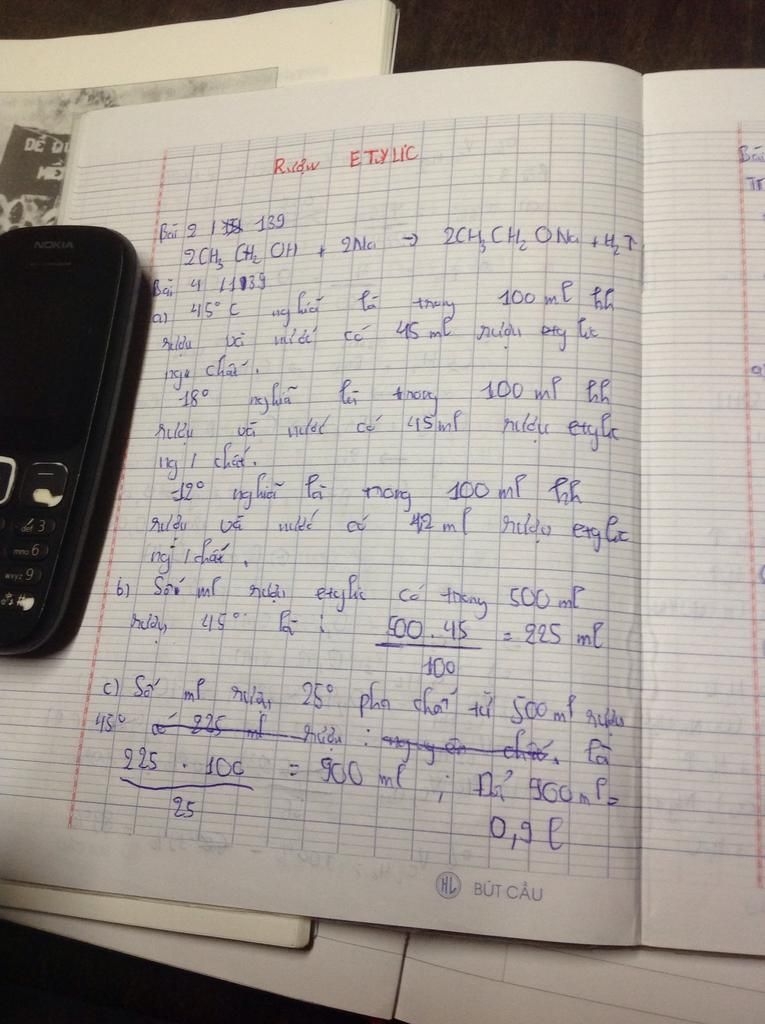 DỄ DÙ
MIỀ
NOKIA
def 3
mno 6
wxyz 9
Rượu ETYLIC
Bài 2 / 139
2CH₃ CH₂ OH + 2Na → 2CH₃CH₂ ONa + H₂↑
Bài 4 / 139
a) 45° C nghĩa là trong 100 ml hh
rượu và nước có 45 ml rượu etylic
ngu chất.
18° nghĩa là trong 100 ml hh
rượu và nước có 45ml rượu etylic
ng / chất.
12° nghĩa là trong 100 ml hh
rượu và nước có 42 ml rượu etylic
ng / chất.
b) Số ml rượu etylic có trong 500 ml
rượu 45° là : 500 . 45 / 100 = 225 ml
c) Số ml rượu 25° pha chế từ 500 ml rượu
45° có 225 ml rượu : nguyên chất. là
225 . 100 / 25 = 900 ml ; 900 ml =
0,9 l
HL BÚT CẦU
Bài
Tr
a